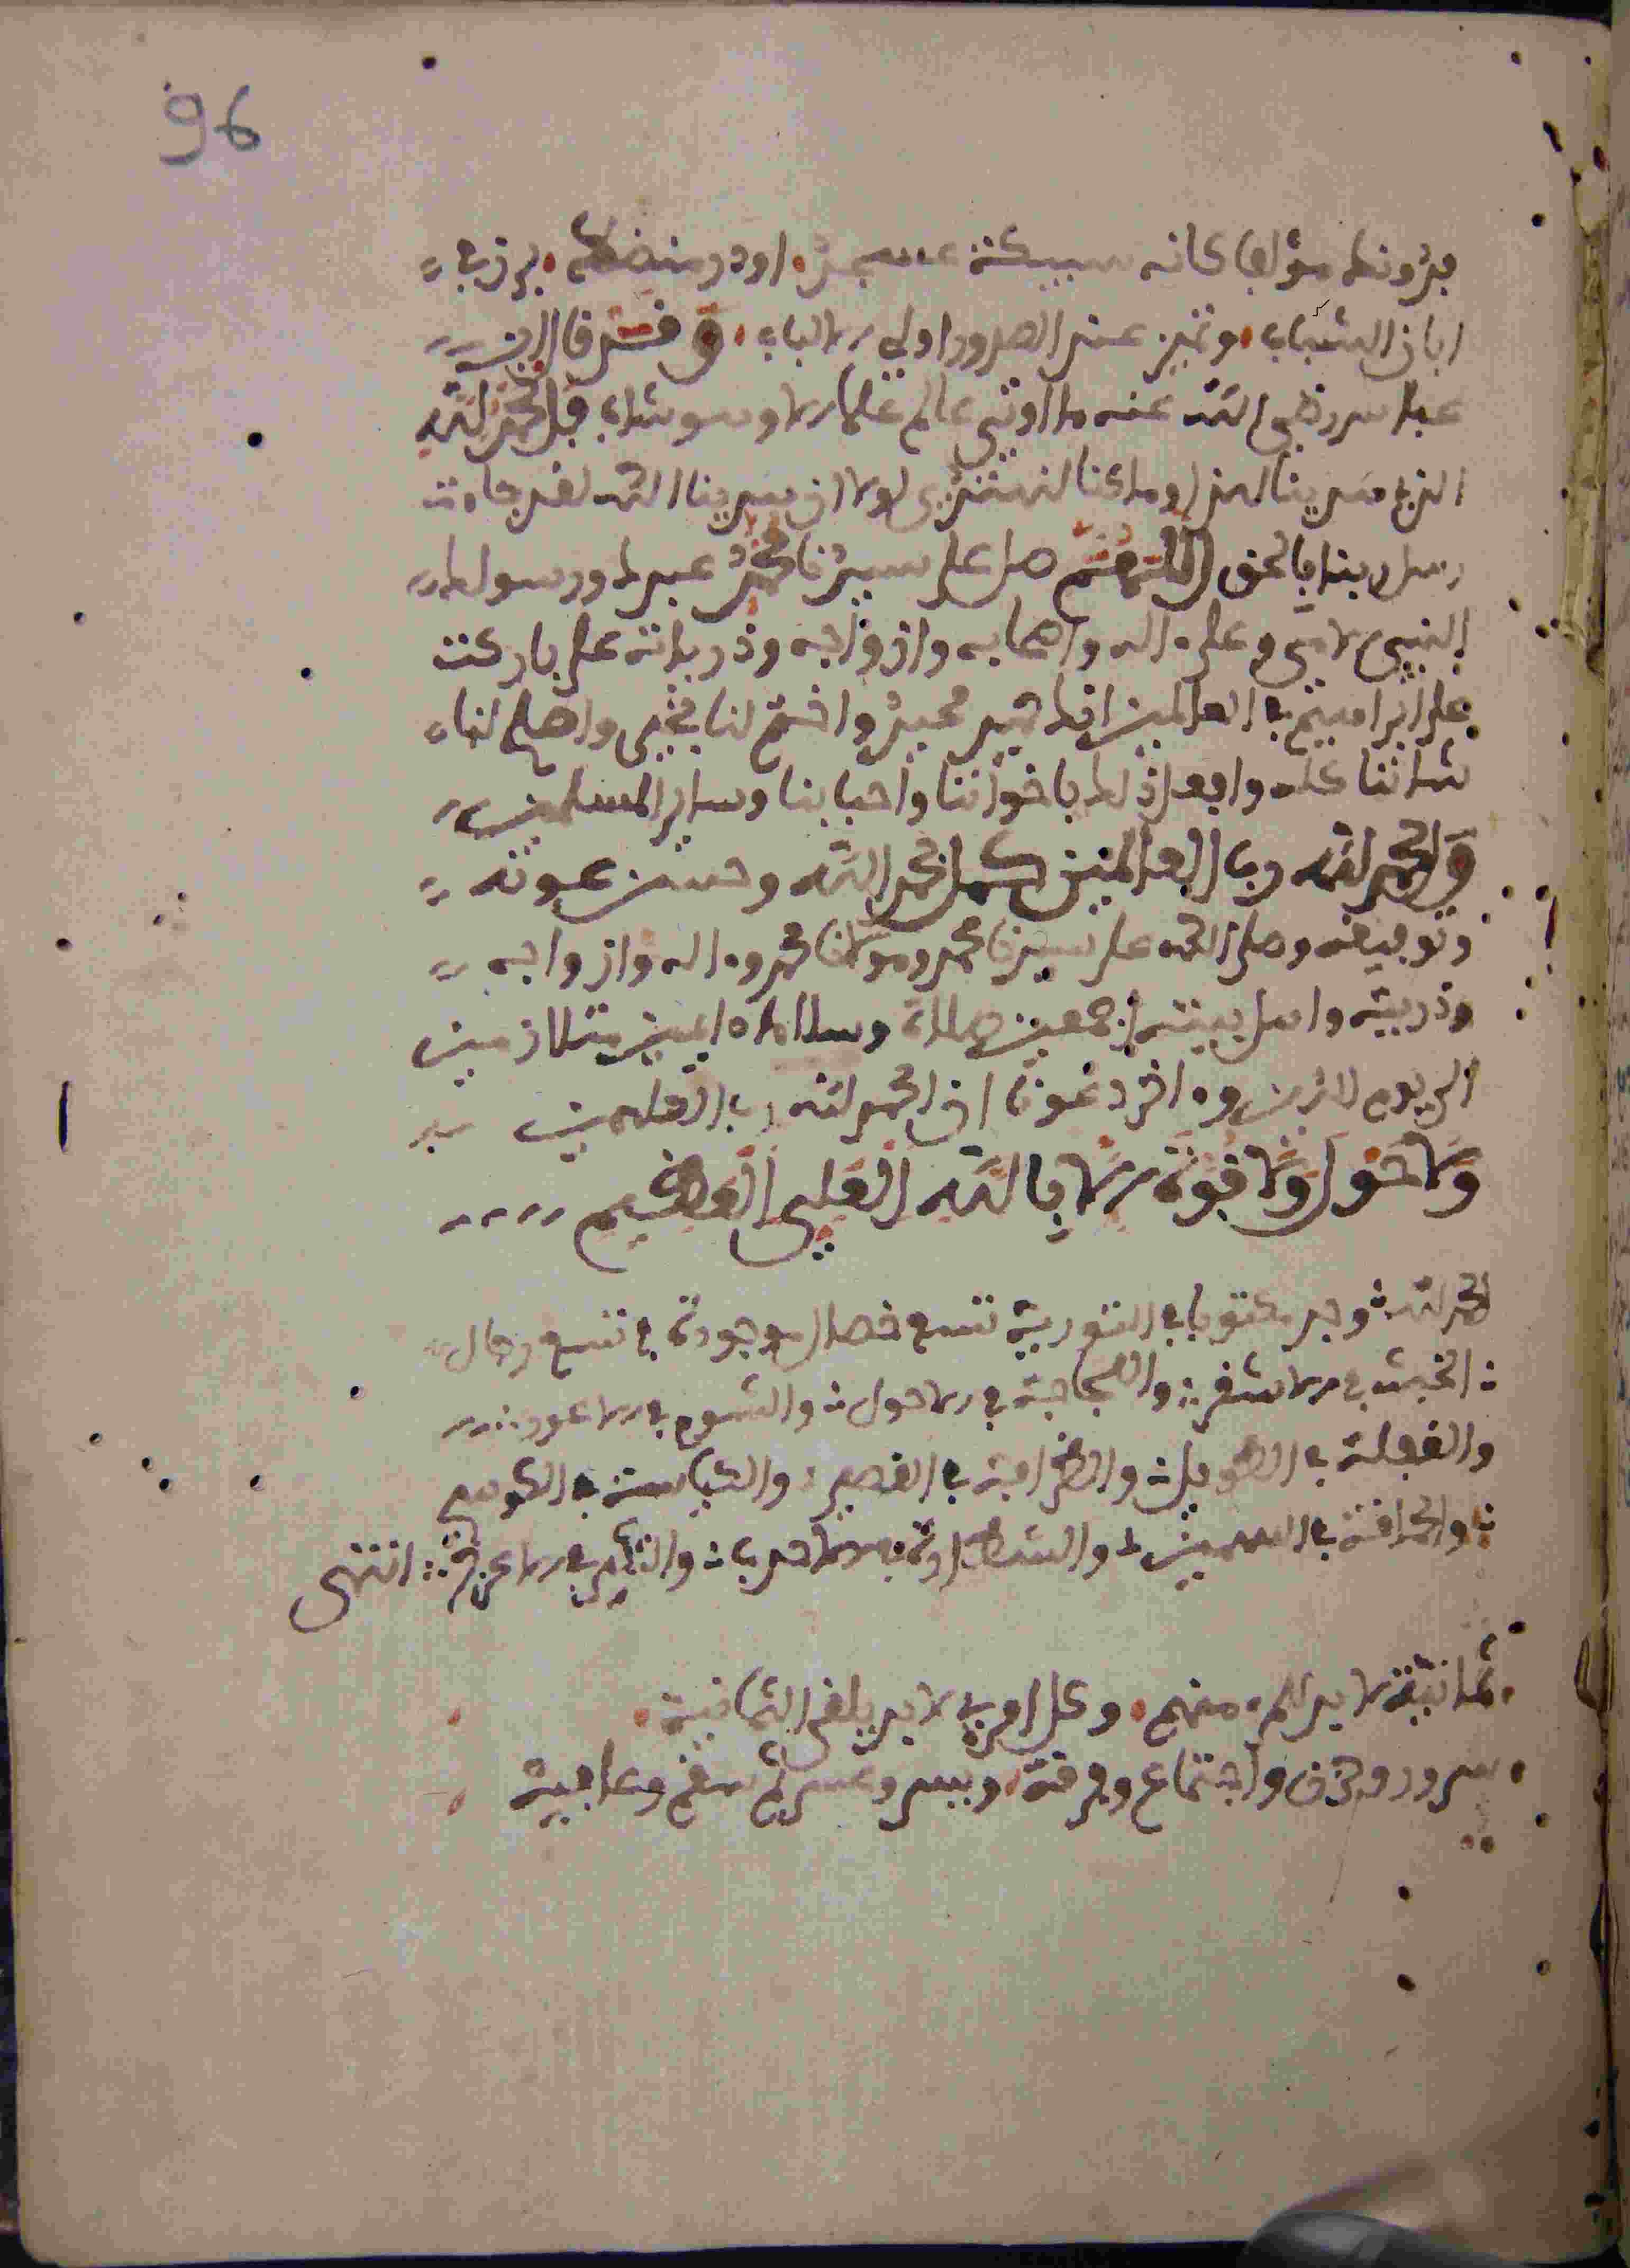 96
فدونك مؤلفا كانه سبيكة عسجد، او در منضد، برز في
ابان الشباب، وتميز عند الصدور اولي الالباب، وقد قال ابن
عباس رضي الله عنه ما اوتي عالم علما الا وهو شاب قل الحمد لله
الذي هدينا لهذا وما كنا لنهتدي لولا ان هدينا الله لقد جاءت
رسل ربنا بالحق اللهم صل على سيدنا محمد عبدك ورسولك
النبي الامي وعلى اله واصحابه وازواجه وذرياته كما باركت
على ابراهيم في العالمين انك حميد مجيد واختم لنا بخير واصلح لنا
شاننا كله وافعل ذلك باخواننا واحبابنا وساير المسلمين
والحمد لله رب العالمين كمل بحمد الله وحسن عونه
وتوفيقه وصلى الله على سيدنا محمد ومولانا محمد واله وازواجه
وذريته واهل بيته اجمعين صلاة وسلاما دايمين متلازمين
الى يوم الدين واخر دعونا ان الحمد لله رب العلمين
ولا حول ولا قوة الا بالله العلي العظيم
الحمد لله وجد مكتوبا في التورية تسع خصال موجودة في تسع رجال
الخبث في الاشقر والحجاجة في الاحول والشوم في الاعور
والغفلة في الطويل والظرافة في القصير والكياسة في الكوسج
والحذاقة في السمين والشطارة في الاحدب والتكبر في الاعرج انتهى
ثمانية لا بد للمرء منهم، وكل امرء لا بد يلقى الثمانية
سرور وحزن واجتماع وفرقة، ويسر وعسر ثم سقم وعافية